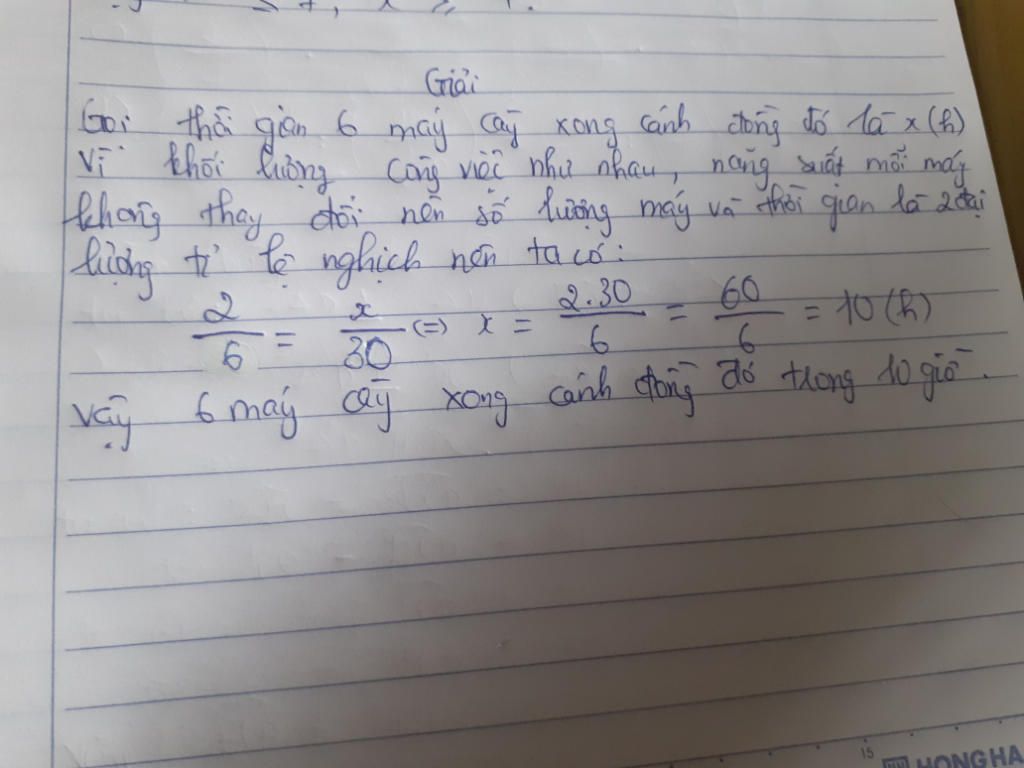 Giải
Gọi thời gian 6 máy cày xong cánh đồng đó là x (h)
Vì khối lượng công việc như nhau, năng suất mỗi máy
không thay đổi nên số lượng máy và thời gian là 2 đại
lượng tỉ lệ nghịch nên ta có:
2/6 = x/30 (=) x = 2.30/6 = 60/6 = 10 (h)
vậy 6 máy cày xong cánh đồng đó trong 10 giờ.
15 HONG HA